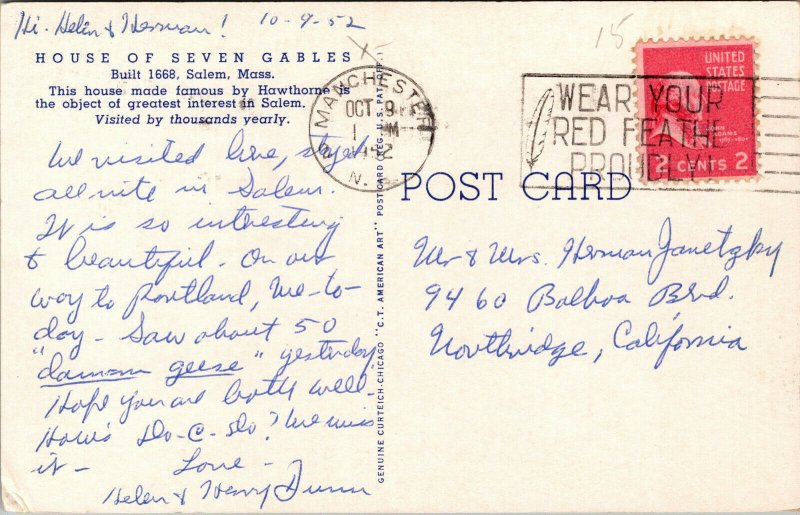 Hi - Helen & Herman! 10-9-52
HOUSE OF SEVEN GABLES
Built 1668, Salem, Mass.
This house made famous by Hawthorne is
the object of greatest interest in Salem.
Visited by thousands yearly.
We visited here, stayed
all nite in Salem.
It is so interesting
& beautiful. On our
way to Portland, Me - to-
day - Saw about 50
"damm geese" yesterday
Hope you are both well -
How's Do-C-Do? We miss
it - Love -
Helen & Henry Dunn
POSTCARD (REG. U.S. PAT. OFF.)
GENUINE CURTEICH-CHICAGO "C.T. AMERICAN ART"
15
MANCHESTER
OCT 9
1 M
1952
N.
WEAR YOUR
RED FEATHE
PROUDLY
UNITED
STATES
POSTAGE
JOHN
ADAMS
2 CENTS 2
POST CARD
Mr & Mrs. Herman Janetzky
9460 Balboa Blvd.
Northridge, California